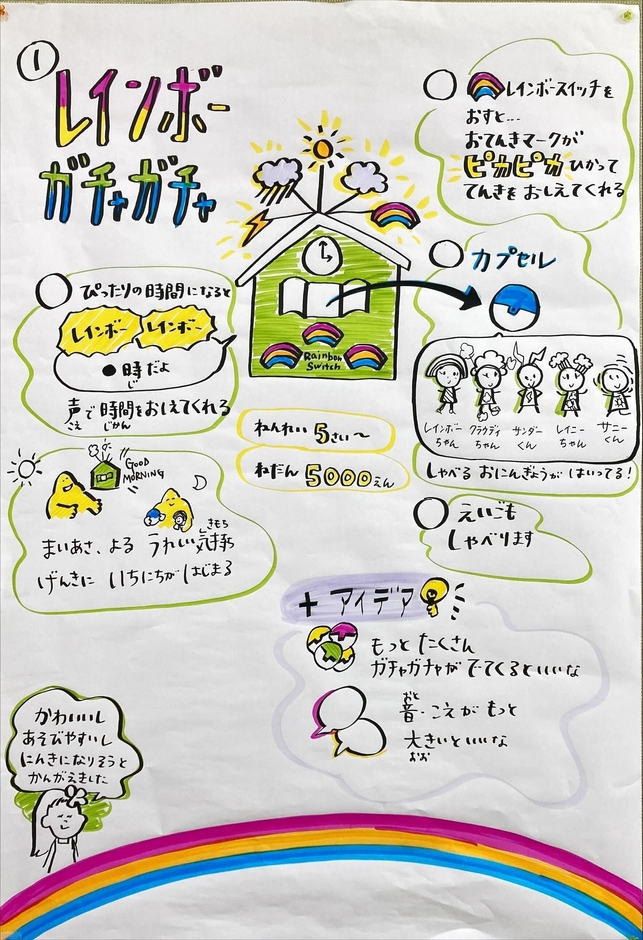 1
レインボー
ガチャガチャ
レインボースイッチを
おすと…
おてんきマークが
ピカピカ ひかって
てんきを おしえてくれる
カプセル
ぴったりの時間になると
レインボー レインボー
●時だよ
じ
声で時間をおしえてくれる
こえ じかん
Rainbow
Switch
レインボー
ちゃん
クラウディ
ちゃん
サンダー
くん
レイニー
ちゃん
サニー
くん
しゃべる おにんぎょうが はいってる!
ねんれい 5さい〜
ねだん 5000えん
GOOD
MORNING
きもち
まいあさ、よる うれしい気持ち
げんきに いちにちが はじまる
えいごも
しゃべります
+ アイデア
もっと たくさん
ガチャガチャが でてくるといいな
おと
音・こえが もっと
大きいといいな
おお
かわいいし
あそびやすいし
にんきになりそうと
かんがえました